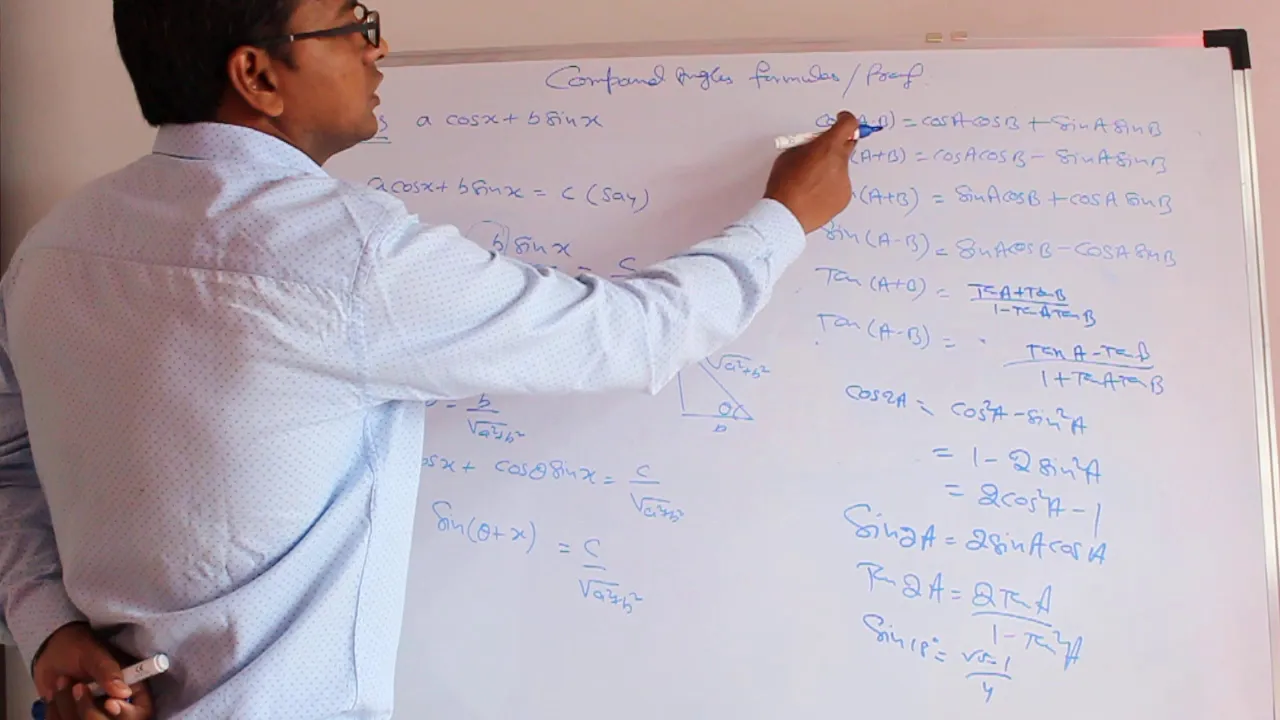 Compound Angles formulas/Proof
a cosx + b sinx
acosx + b sinx = c (say)
b sinx
= c
b
√a²+b²
= b/√a²+b²
cosθ sinx = c/√a²+b²
sin(θ + x) = c/√a²+b²
√a²+b²
θ
cos(A-B) = cosA cosB + sinA sinB
(A+B) = cosA cosB - sinA sinB
(A+B) = sinA cosB + cosA sinB
sin(A-B) = sinA cosB - cosA sinB
Tan(A+B) = TanA+TanB/1-TanATanB
Tan(A-B) = TanA-TanB/1+TanATanB
cos2A = cos²A - sin²A
= 1 - 2sin²A
= 2cos²A - 1
Sin2A = 2sinA cosA
Tan2A = 2TanA/1-Tan²A
Sin18° = √5-1/4